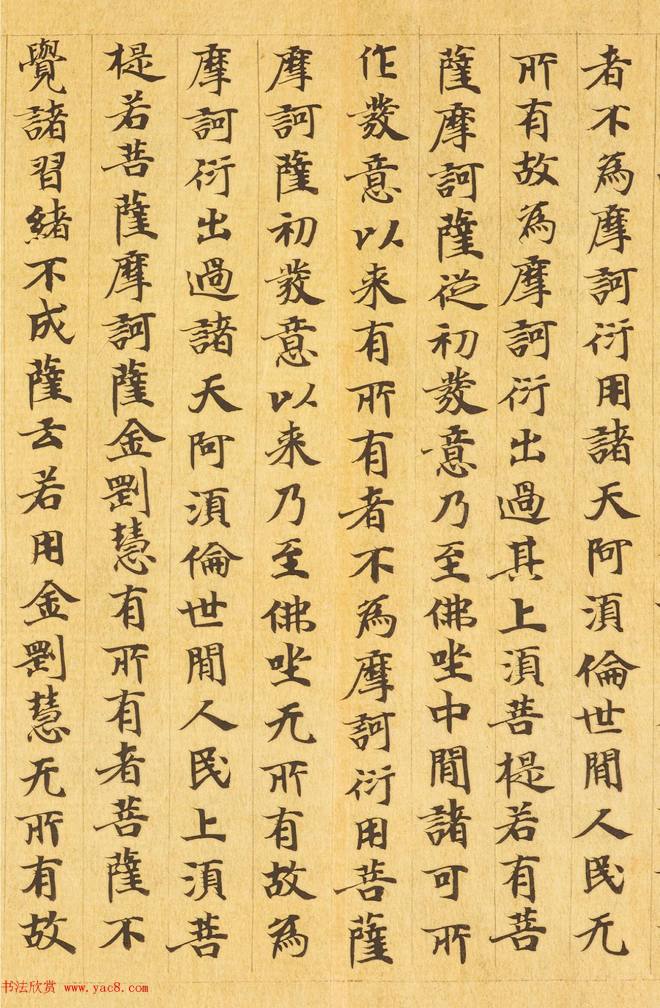 者不為摩訶衍用諸天阿須倫世閒人民无
所有故為摩訶衍出過其上須菩提若有菩
薩摩訶薩從初發意乃至佛坐中閒諸可所
作發意以来有所有者不為摩訶衍用菩薩
摩訶薩初發意以来乃至佛坐无所有故為
摩訶衍出過諸天阿須倫世閒人民上須菩
提若菩薩摩訶薩金剛慧有所有者菩薩不
覺諸習緒不成薩云若用金剛慧无所有故
书法欣赏 www.yac8.com